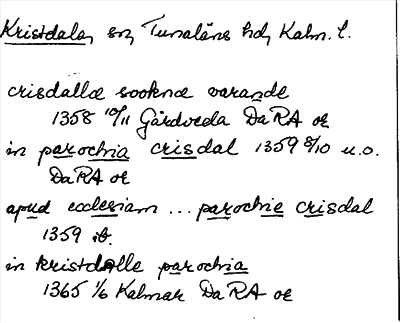 Kristdala, sn, Tunaläns hd, Kalm. l.
crisdallæ sooknæ varande
1358 10/11 Gårdveda DaRA or
in parochia crisdal 1359 8/10 u.o.
DaRA or
apud ecclesiam ... parochie crisdal
1359 ib.
in kristdalle parochia
1365 1/6 Kalmar DaRA or